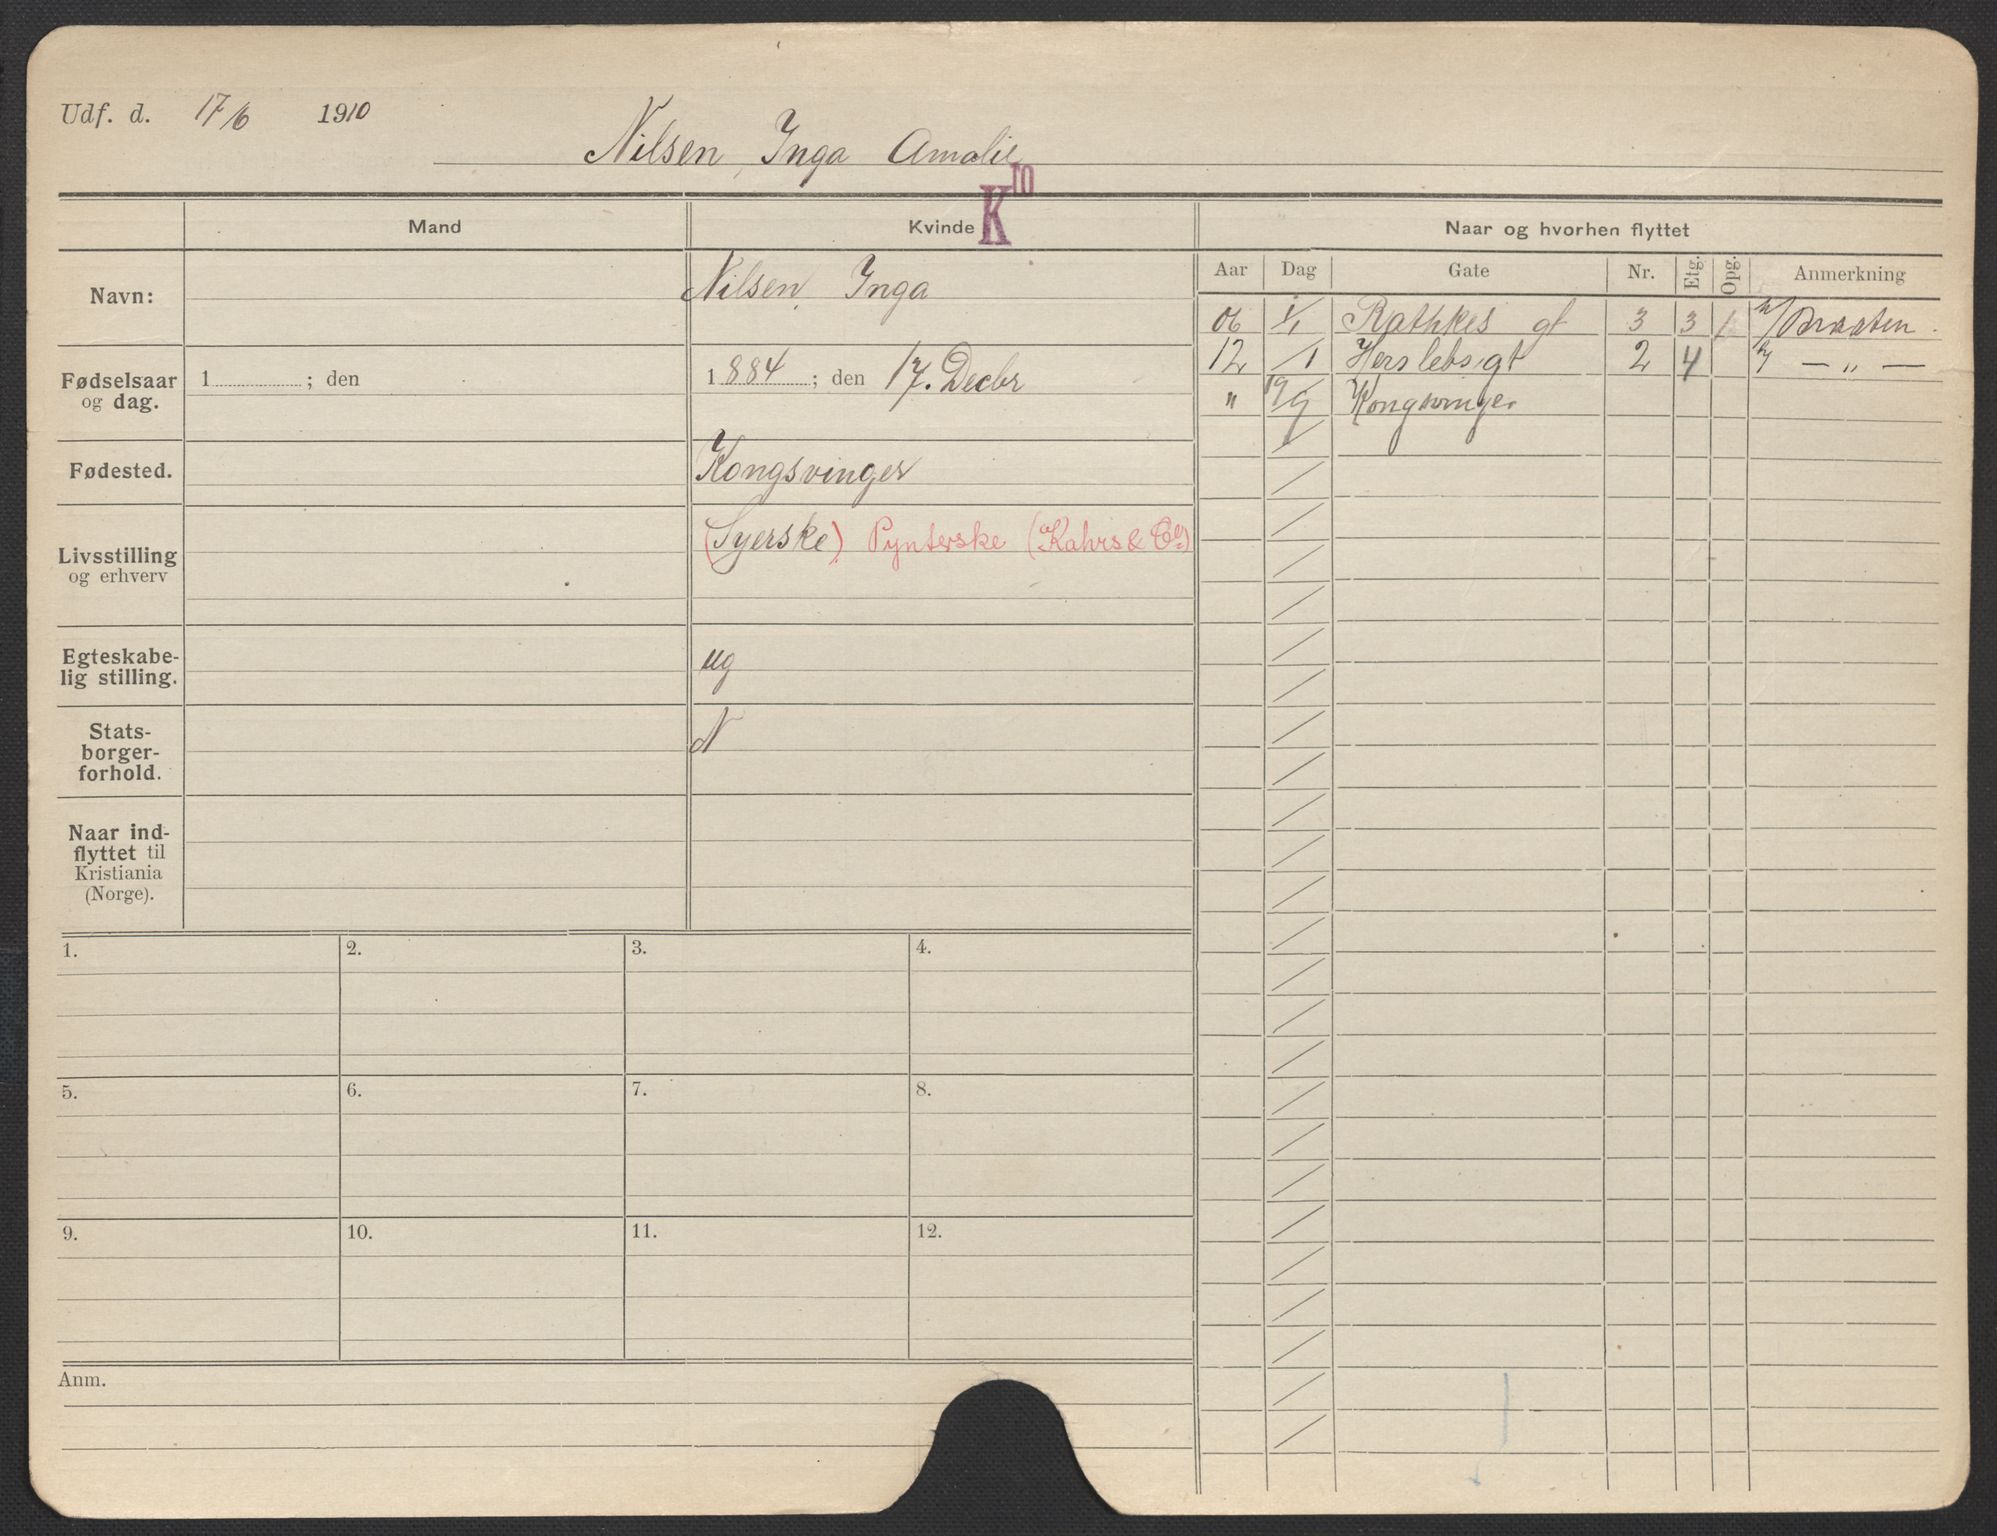 Udf. d. 17/6 1910
Nilsen, Inga Amalie
K ro
Mand Kvinde Naar og hvorhen flyttet
Aar Dag Gate Nr. Etg. Opg. Anmerkning
Navn: Nilsen, Inga
06 1/1 Rathkes gt 3 3 1 h/Braaten.
12 /1 Herslebsgt 2 4 h/ — „ —
" 19/9 Kongsvinger
Fødselsaar
og dag.
1 ; den
1884 ; den 17. Decbr
Fødested. Kongsvinger
Livsstilling
og erhverv
(Syerske) Pynterske (Kahrs & Co)
Egteskabe-
lig stilling.
ug
Stats-
borger-
forhold.
N
Naar ind-
flyttet til
Kristiania
(Norge).
1. 2. 3. 4.
5. 6. 7. 8.
9. 10. 11. 12.
Anm.